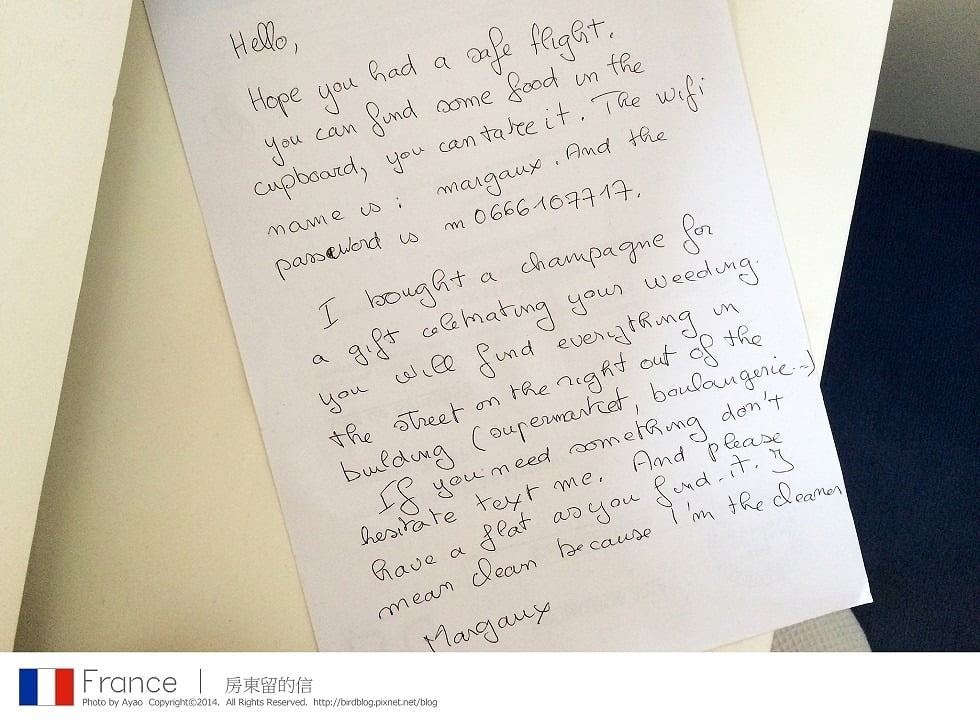 Hello,
Hope you had a safe flight.
you can find some food in the
cupboard, you can take it. The wifi
name is : margaux. And the
password is m0666107717.
I bought a champagne for
a gift celebrating your weeding.
you will find everything in
the street on the right out of the
building (supermarket, boulangerie...)
If you need something don't
hesitate text me. And please
have a flat as you find it. I
mean clean because I'm the cleaner
Margaux
France | 房東留的信
Photo by Ayao Copyright©2014. All Rights Reserved. http://birdblog.pixnet.net/blog